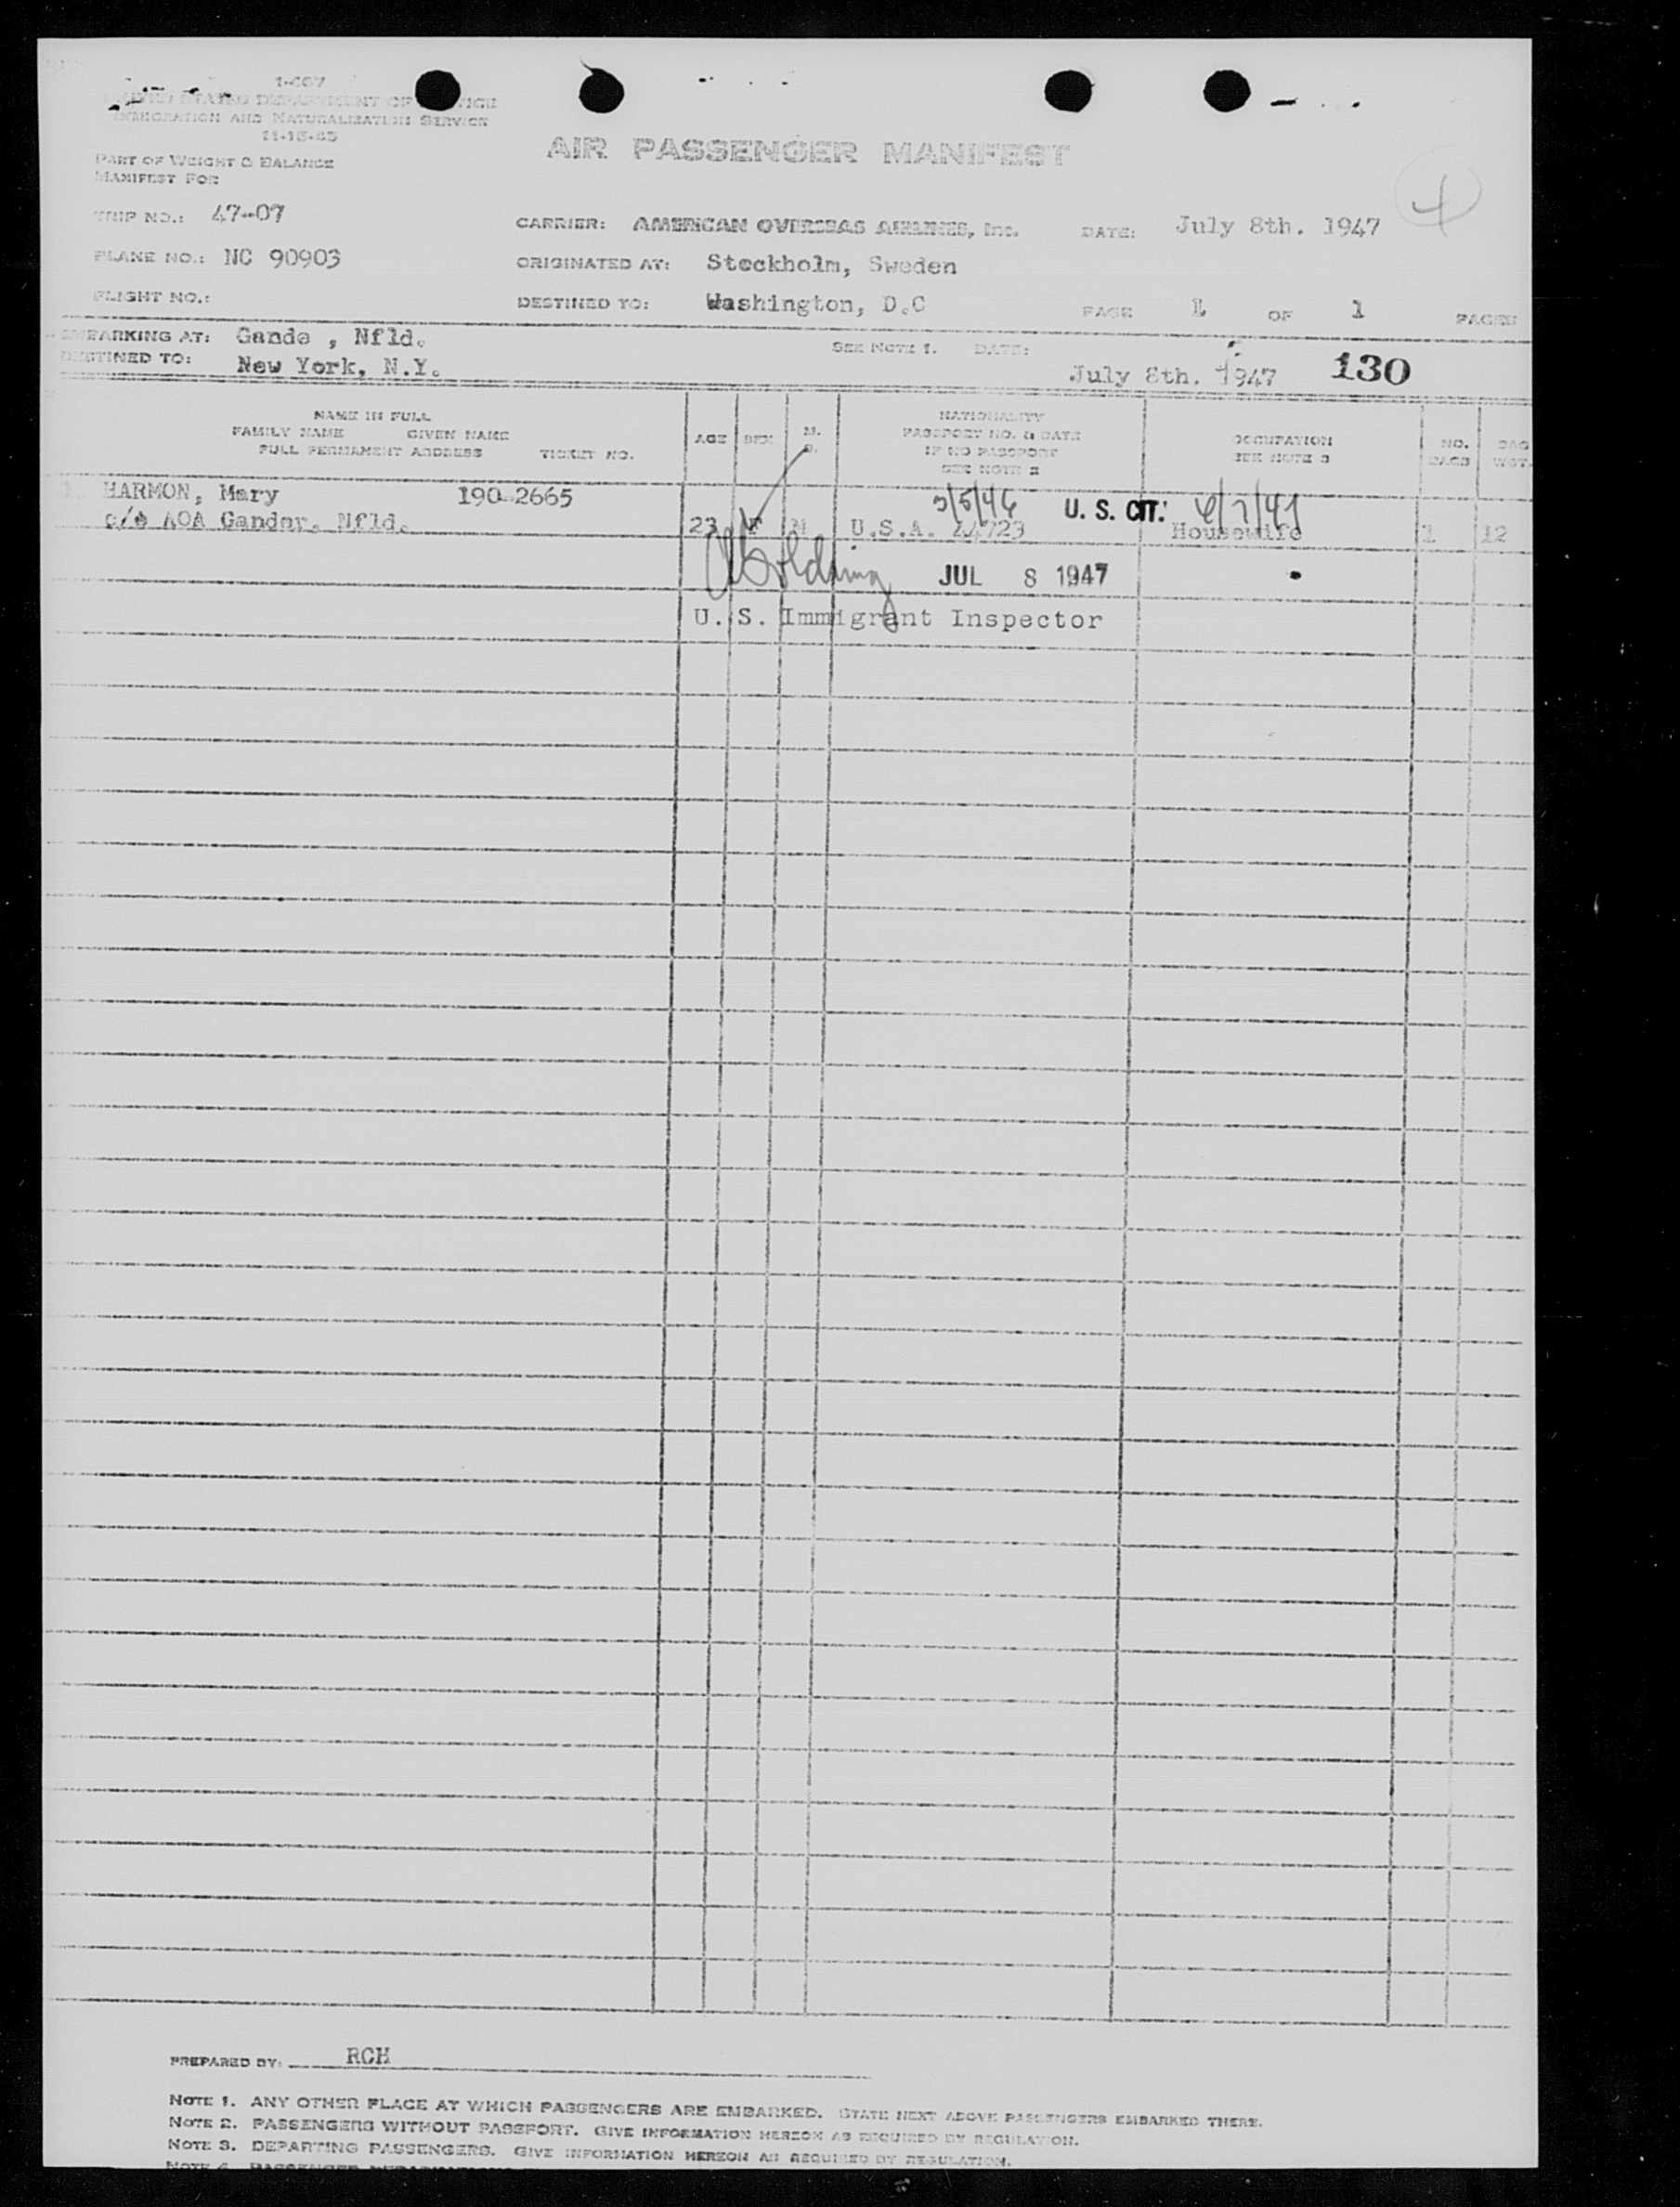 1-467
UNITED STATES DEPARTMENT OF
IMMIGRATION AND NATURALIZATION SERVICE
11-15-45
AIR PASSENGER MANIFEST
PART OF WEIGHT & BALANCE
MANIFEST FOR
TRIP NO.: 47-07 CARRIER: AMERICAN OVERSEAS AIRLINES, Inc. DATE: July 8th. 1947
PLANE NO.: NC 90903 ORIGINATED AT: Stockholm, Sweden
FLIGHT NO.: DESTINED TO: Washington, D.C PAGE 1 OF 1 PAGES
EMBARKING AT: Gande , Nfld. SEE NOTE 1. DATE:
DESTINED TO: New York, N.Y. July 8th. 1947 130
NAME IN FULL
FAMILY NAME GIVEN NAME
FULL PERMANENT ADDRESS TICKET NO.
AGE SEX M. S.
NATIONALITY
PASSPORT NO. & DATE
IF NO PASSPORT
SEE NOTE 2
OCCUPATION
SEE NOTE 3
NO. BAGS
BAG WGT.
HARMON, Mary 190-2665 U. S. CIT.
c/o AOA Gander, Nfld. 23 F M U.S.A. Housewife 1 12
JUL 8 1947
U. S. Immigrant Inspector
PREPARED BY: RCH
NOTE 1. ANY OTHER PLACE AT WHICH PASSENGERS ARE EMBARKED. STATE NEXT ABOVE PASSENGERS EMBARKED THERE.
NOTE 2. PASSENGERS WITHOUT PASSPORT. GIVE INFORMATION HEREON AS REQUIRED BY REGULATION.
NOTE 3. DEPARTING PASSENGERS. GIVE INFORMATION HEREON AS REQUIRED BY REGULATION.